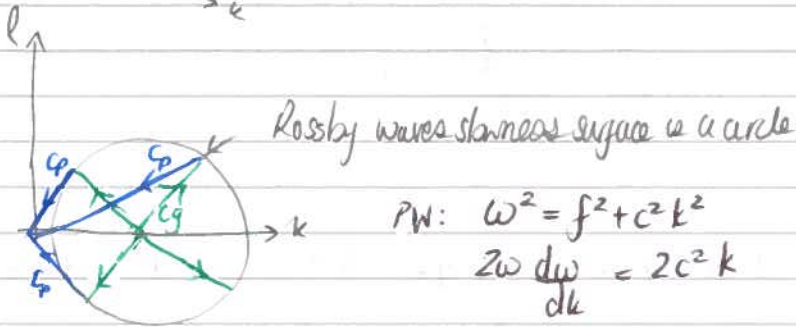 k
l
Rossby waves slowness surface is a circle
Cp
Cp
Cg
k
PW: ω² = f² + c²k²
Cp
2ω dω/dk = 2c²k